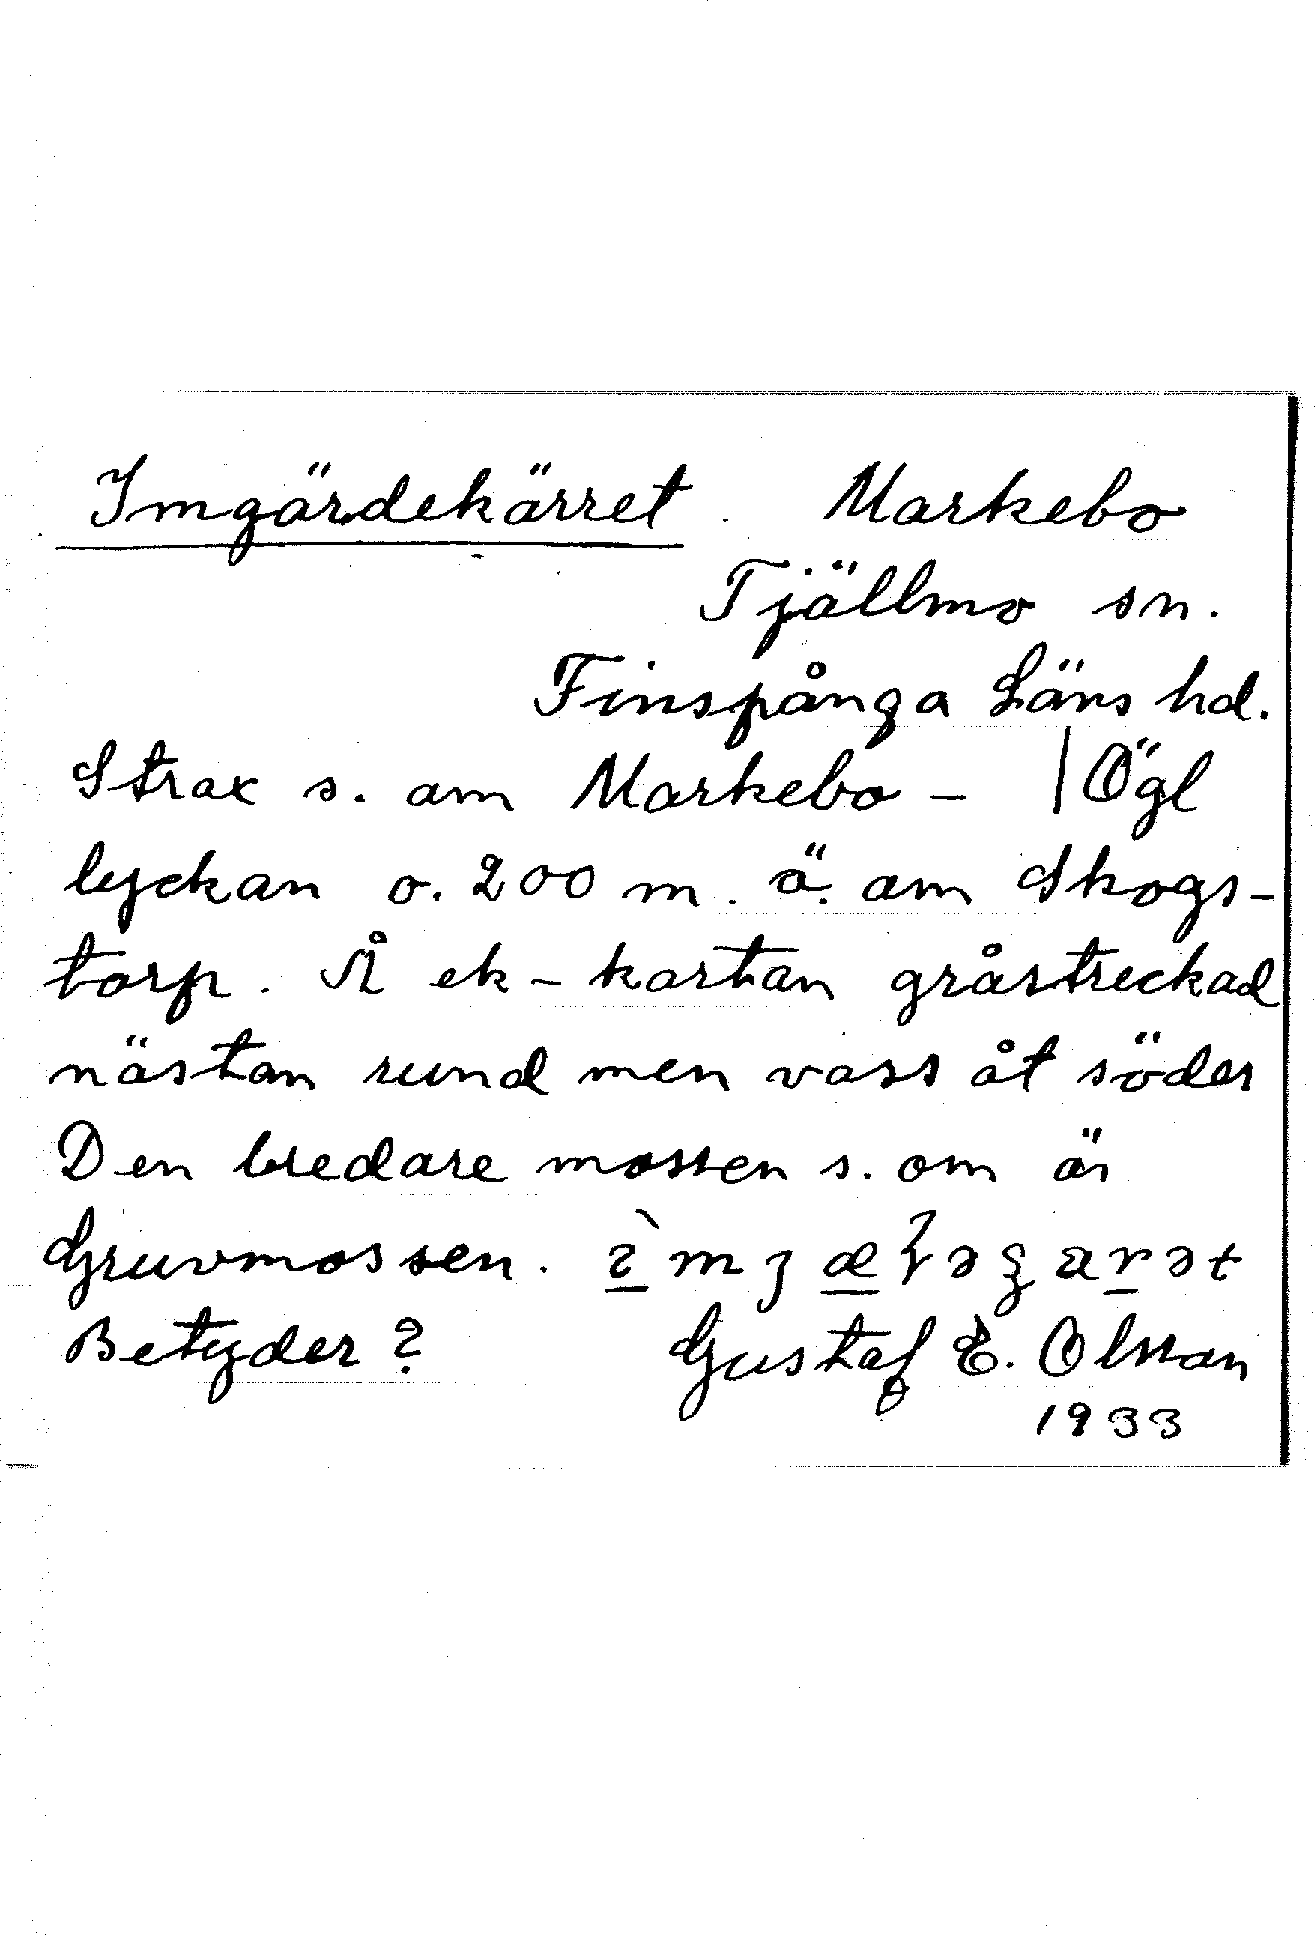 Imgärdekärret. Markebo
Tjällmo sn.
Finspånga Läns hd.
Strax s. om Markebo- | Ögl
lyckan o. 200 m. ö. om Skogs-
torp. Å ek-kartan gråstreckad
nästan rund men vass åt söder
Den bredare mossen s. om är
Gruvmossen.
Betyder? Gustaf E. Olsson
1933